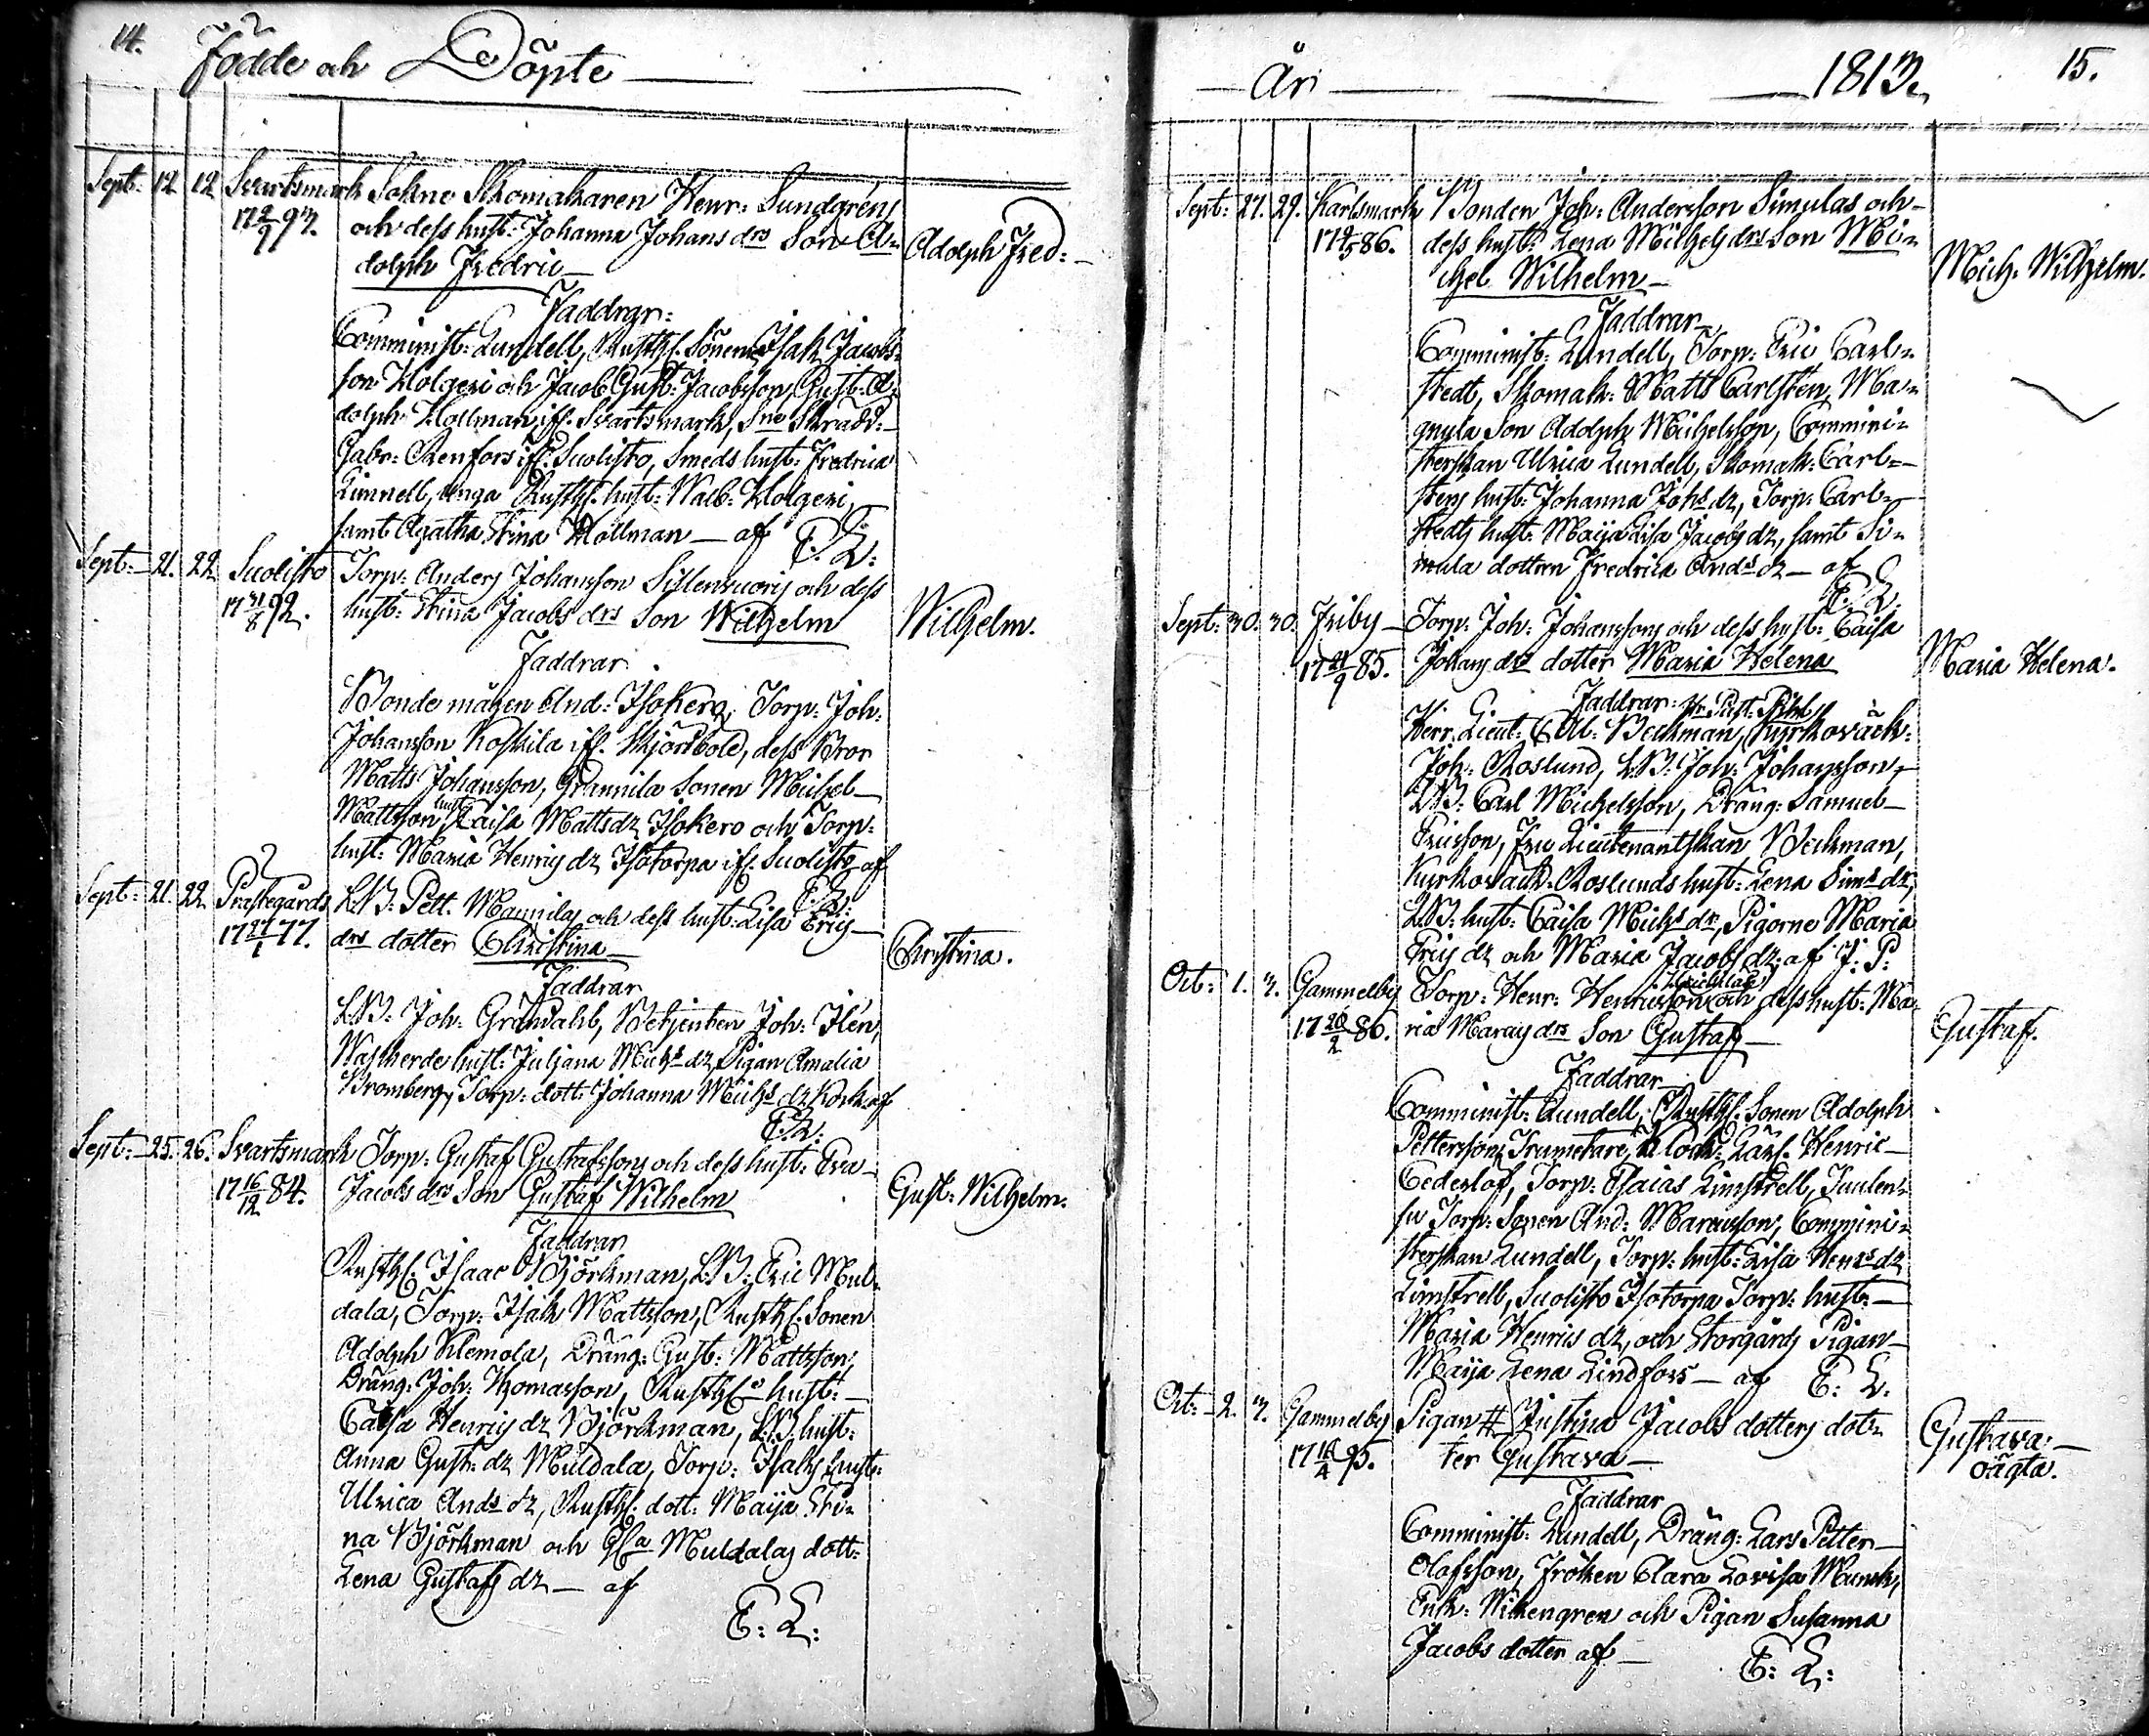 14. Födde och Döpte
Sept: 12 12 Svartsmark Sokne Skomakaren Henr: Sundgréns
17 2/9 93. och dess hust: Johanna Johans drs Son A=
dolph Fredric Adolph Fred:
Faddrar:
Comminist: Lundell, Rusth. Sönerne Isak Jacobs
son Klolgeri och Jacob Gust: Jacobsson, Gust: A:
dolph Hollman ifr. Svartsmark, Sne Skrädd:
Gabr: Renfors ifr. Suolisto, Smeds hust: Fredrica
Linnell, unga Rusth. hust: Walb: Klolgeri,
samt Agatha Stina Hollman af E: L:
Sept: 21. 22 Suolisto Torp: Anders Johansson Sillensuoris och dess
17 31/8 92. hust: Stina Jacobs drs Son Wilhelm Wilhelm.
Faddrar
Bonde mågen And: Isokero, Torp: Joh:
Johansson Koskila ifr. Skjörbole, dess Bror
Matts Johansson, Grannila Sonen Michel
Mattsson hust: Caisa Matts dr Isokero och Torp:
hust: Maria Henrics dr Isotorpa ifr. Suolisto af
E: L:
Sept: 21. 22. Prästegårds L.B: Pett. Mannilas och dess hust: Lisa Erics
17 27/1 77. drs dotter Christina Christina.
Faddrar
L.B: Joh: Grandahl, Betjenten Joh: Ilén,
Wallherde hust: Juliana Michs dr, Pigan Amalia
Bromberg, Torp: dott: Johanna Michs dr Kock af
E: L:
Sept: 25. 26. Svartsmark Torp: Gustaf Gustafssons och dess hust: Eva
17 16/12 84. Jacobs drs Son Gustaf Wilhelm Gust: Wilhelm.
Faddrar
Rusth. Isaac Björkman, L.B: Eric Mul=
dala, Torp: Isak Mattsson, Rusth. Sonen
Adolph Klemola, Dräng: Gust: Mattsson,
Dräng: Joh: Thomasson, Rusth. hust:
Caisa Henrics dr Björkman, L.B. hust:
Anna Gust: dr Muldala, Torp: Isaks hust:
Ulrica Ands dr, Rusth. dott: Maija Sti=
na Björkman och Muldalas dott:
Lena Gustafs dr af
E: L:
År 1813. 15.
Sept: 27. 29. Karlsmark Bonden Joh: Andersson Simulas och
17 86. dess hust: Lena Michels drs Son Mi=
chel Wilhelm Mich: Wilhelm.
Faddrar
Comminist: Lundell, Torp: Eric Carl=
stedt, Skomak: Matts Carlsten, Ma=
gnula Son Adolph Michelsson, Commini=
sterskan Ulrica Lundell, Skomak: Carl=
stens hust: Johanna Johs dr, Torp: Carl=
stedts hust: Maija Lisa Jacobs dr, samt Si=
mula dottren Fredrica Ands dr af
E: L:
Sept: 30. 30. Friby Torp: Joh: Johanssons och dess hust: Caisa
17 21/9 85. Johans drs dotter Maria Helena Maria Helena.
Faddrar:
Herr Lieut: Beckman, Kyrkoväck:
Joh: Roslund, L.B: Joh: Johansson,
L.B: Carl Michelsson, Dräng: Samuel
Ericsson, Fru Lieutenantskan Beckman,
Kyrkoväck: Roslunds hust: Lena Sims dr,
L.B: hust: Caisa Michs dr, Pigorne Maria
Erics dr och Maria Jacobs dr af J: P:
Oct: 1. 3. Gammelby Torp: Henr: Henricsson och dess hust: Ma=
17 26/2 86. ria Marcus drs Son Gustaf Gustaf.
Faddrar
Comminist: Lundell, Rusth. Sonen Adolph
Pettersson, Trumetare, Henric
Cederlöf, Torp: Esaias Limstrell, Juulen=
su Torp: Sonen And: Marcusson, Commini=
sterskan Lundell, Torp: hust: Lisa Henrs dr
Limstrell, Suolisto Isotorpa Torp: hust:
Maria Henrics dr, och Storgårds Pigan
Maija Lena Lindfors af E: L:
Oct: 2. 3. Gammelby Pigan # Justina Jacobs dotters dot=
17 18/4 95. ter Gustava Gustava
oägta.
Faddrar
Comminist: Lundell, Dräng: Lars Petter
Olofsson, Fröken Clara Lovisa Munck,
Enk: Wikengren och Pigan Susanna
Jacobs dotter af E: L: